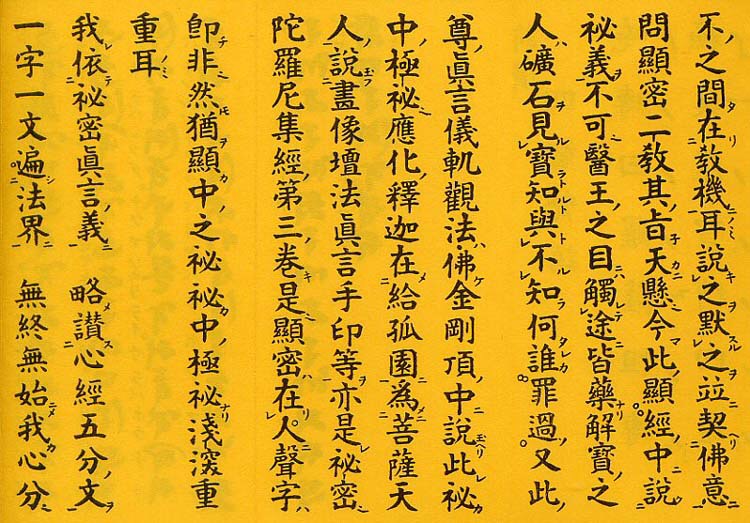 不之間在敎機耳說之默之竝契佛意
問顯密二敎其旨天懸今此顯經中說
祕義不可醫王之目觸途皆藥解寶之
人礦石見寶知與不知何誰罪過。又此
尊眞言儀軌觀法佛金剛頂中說此祕
中極祕應化釋迦在給孤園爲菩薩天
人說畫像壇法眞言手印等亦是祕密
陀羅尼集經第三卷是顯密在人聲字
卽非然猶顯中之祕祕中極祕淺深重
重耳
我依祕密眞言義 略讚心經五分文
一字一文遍法界 無終無始我心分